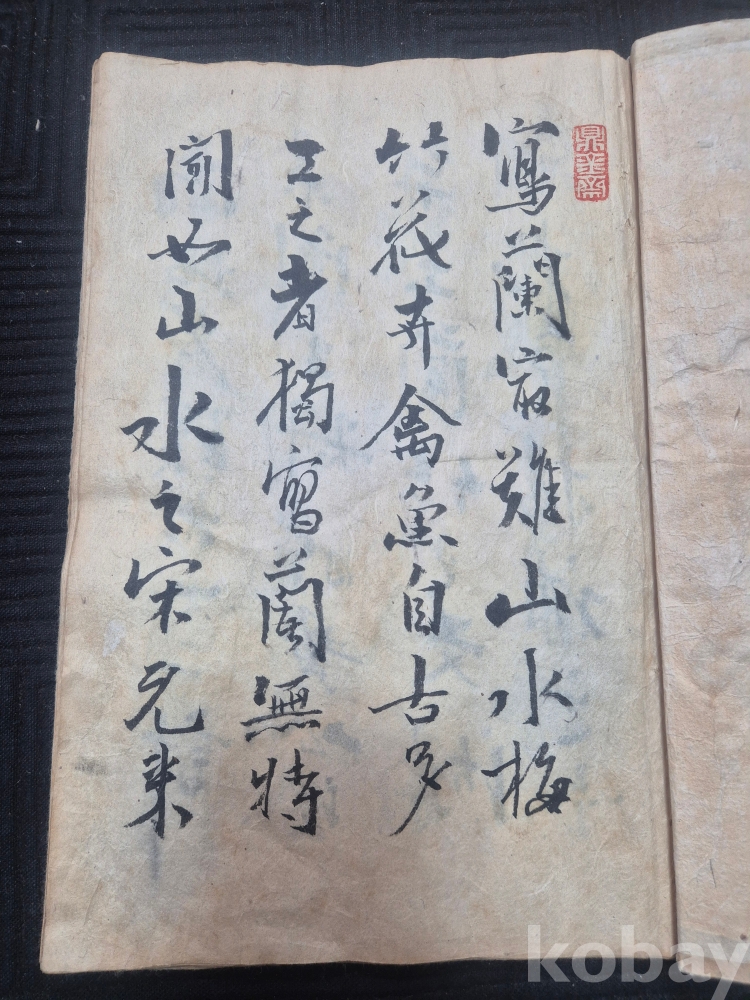 寫蘭最難山水梅
竹花卉禽魚自古多
工之者獨寫蘭無特
聞如山水之宋元來
kobay